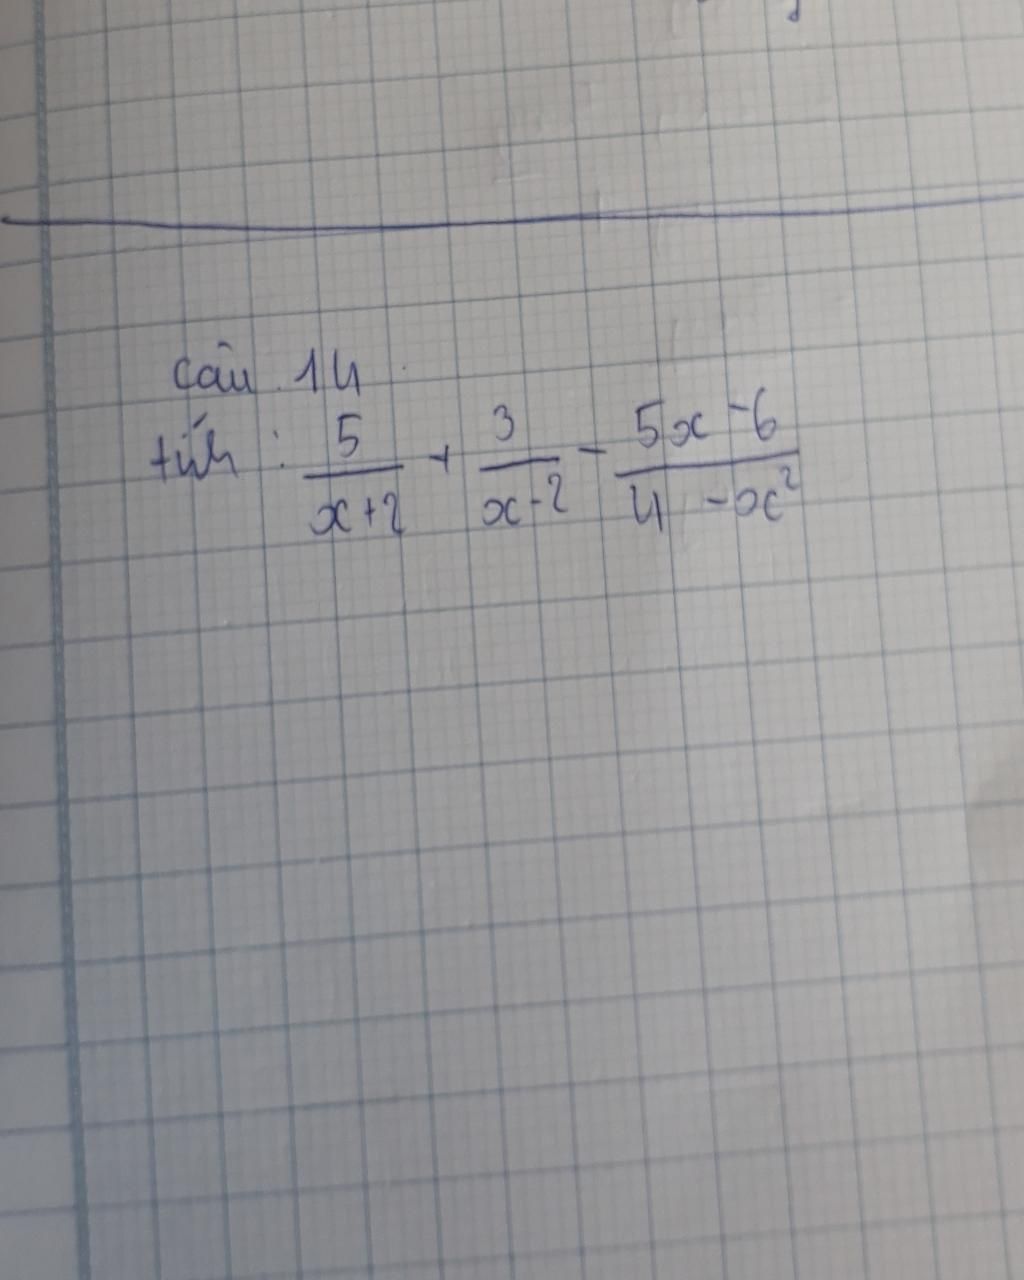 Câu 14
tính : 5/(x+2) + 3/(x-2) - (5x-6)/(4-x²)